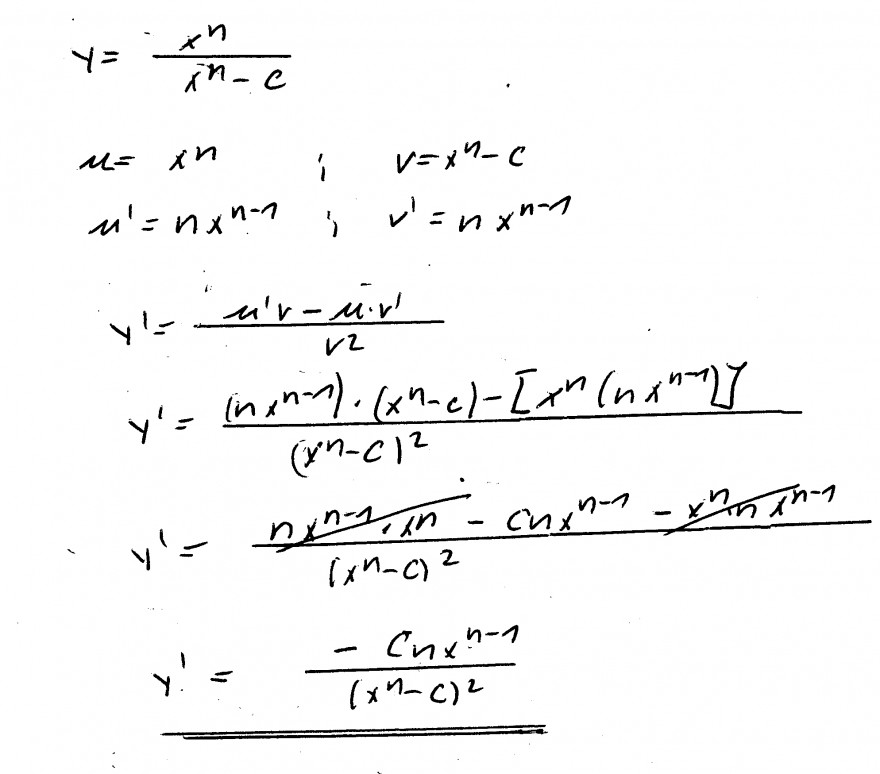 y = x^n / (x^n - c)
u = x^n ; v = x^n - c
u' = n x^(n-1) ; v' = n x^(n-1)
y' = (u'v - u·v') / v^2
y' = ((n x^(n-1)) · (x^n - c) - [x^n (n x^(n-1))]) / (x^n - c)^2
y' = (n x^(n-1) · x^n - c n x^(n-1) - x^n n x^(n-1)) / (x^n - c)^2
y' = - c n x^(n-1) / (x^n - c)^2